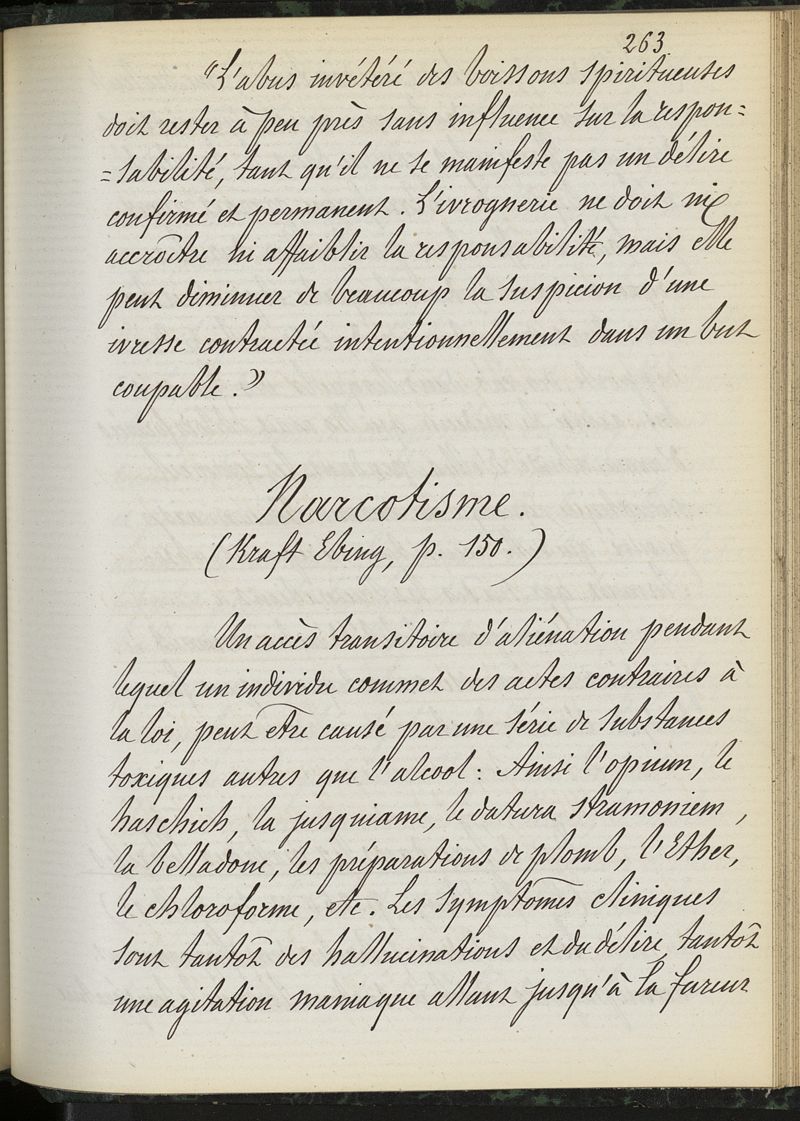 263
"L'abus invétéré des boissons spiritueuses
doit rester à peu près sans influence sur la respon=
=sabilité, tant qu'il ne se manifeste pas un délire
confirmé et permanent. L'ivrognerie ne doit ni
accroître ni affaiblir la responsabilité, mais elle
peut diminuer de beaucoup la suspicion d'une
ivresse contractée intentionnellement dans un but
coupable."
Narcotisme.
(Kraft Ebing, p. 150.)
Un accès transitoire d'aliénation pendant
lequel un individu commet des actes contraires à
la loi, peut être causé par une série de substances
toxiques autres que l'alcool: Ainsi l'opium, le
haschich, la jusquiame, le datura stramoniem,
la belladone, les préparations de plomb, l'Ether,
le chloroforme, etc. Les symptômes cliniques
sont tantôt des hallucinations et du délire, tantôt
une agitation maniaque allant jusqu'à la fureur